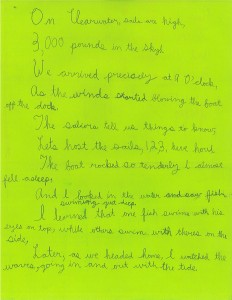 On Clearwater, sails are high,
3,000 pounds in the sky!
We arrived precisely at 9 O'clock,
As the winds started blowing the boat
off the dock.
The sailors tell us things to know,
Lets hoist the sails, 1,2,3, here how!
The boat rocked so tenderly I almost
fell asleep.
And I looked in the water and saw fish
swimming yet deep.
I learned that one fish swims with his
eyes on top, while others swim with theres on the
side,
Later, as we headed home, I watched the
waves, going in and out with the tide.